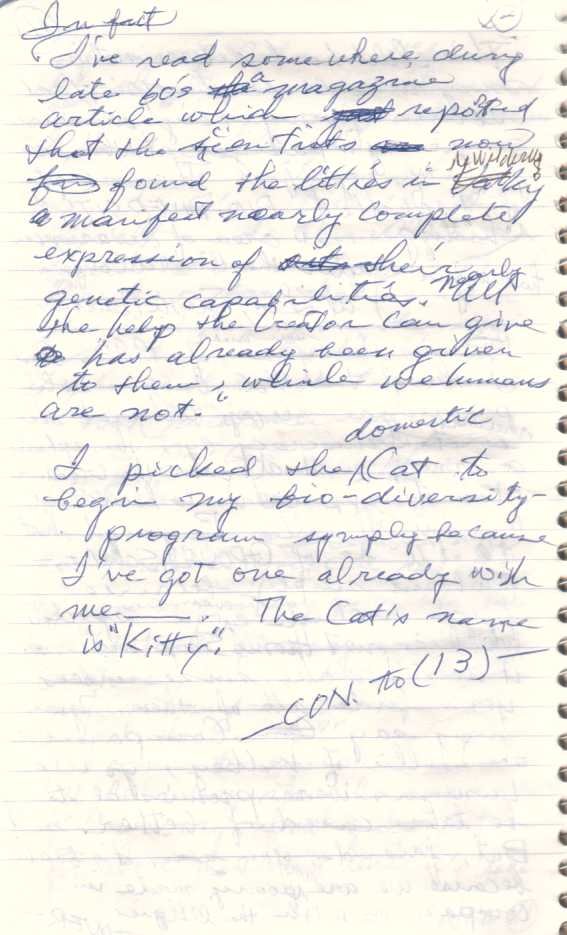 In fact
I've read somewhere, during
late 60's a magazine
article which reported
that the scientists now
found the kitties in
a manifest nearly complete
expression of their nearly
genetic capabilities. "All
the help the Creator can give
has already been given
to them, while we humans
are not."
domestic
I picked the Cat to
begin my bio-diversity-
program symply because
I've got one already with
me ___. The Cat's name
is "Kitty".
CON. to (13) —